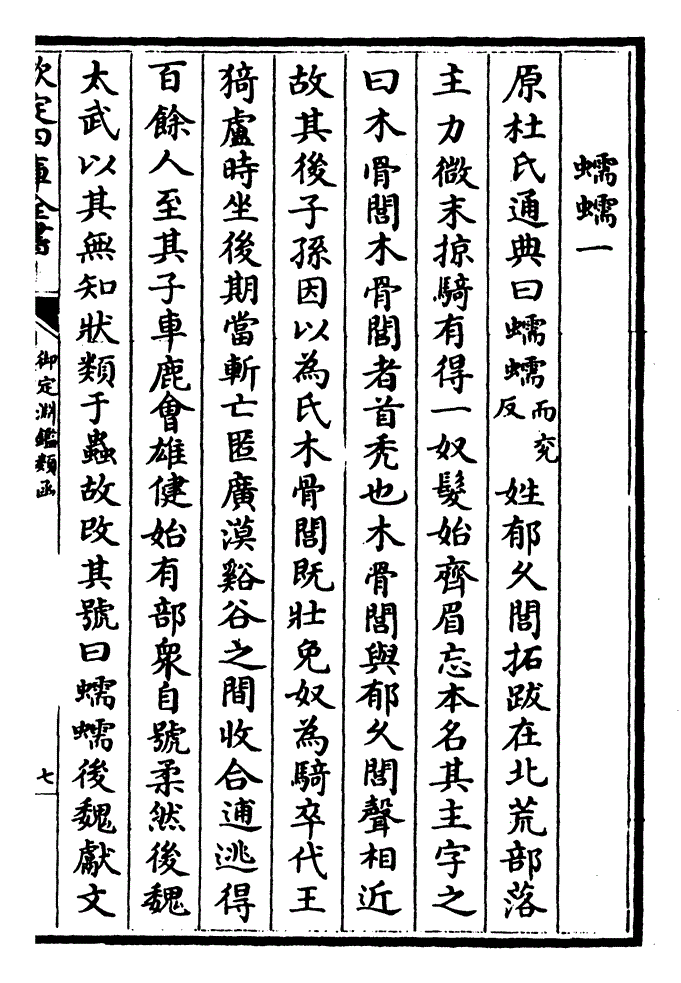 蠕蠕一
原杜氏通典曰蠕蠕而兖反姓郁久閭拓跋在北荒部落
主力微末掠騎有得一奴髮始齊眉忘本名其主字之
曰木骨閭木骨閭者首秃也木骨閭與郁久閭聲相近
故其後子孫因以為氏木骨閭既壯免奴為騎卒代王
猗盧時坐後期當斬亡匿廣漠谿谷之間收合逋逃得
百餘人至其子車鹿會雄健始有部衆自號柔然後魏
太武以其無知狀類于蟲故改其號曰蠕蠕後魏獻文
欽定四庫全書
御定淵鑑類函
七